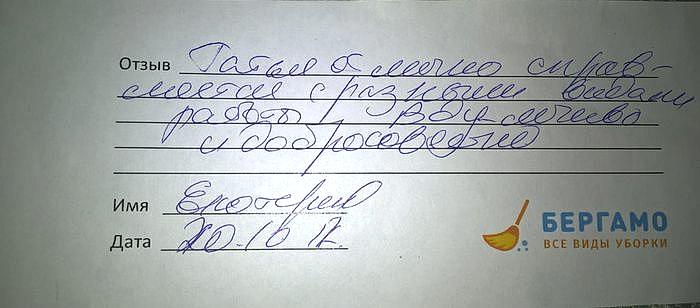 Отзыв Наталья отлично справ-
ляется с разными видами
работы. Вдумчиво
и добросовестно
Имя Екатерина
Дата 20.10 17.
БЕРГАМО
ВСЕ ВИДЫ УБОРКИ